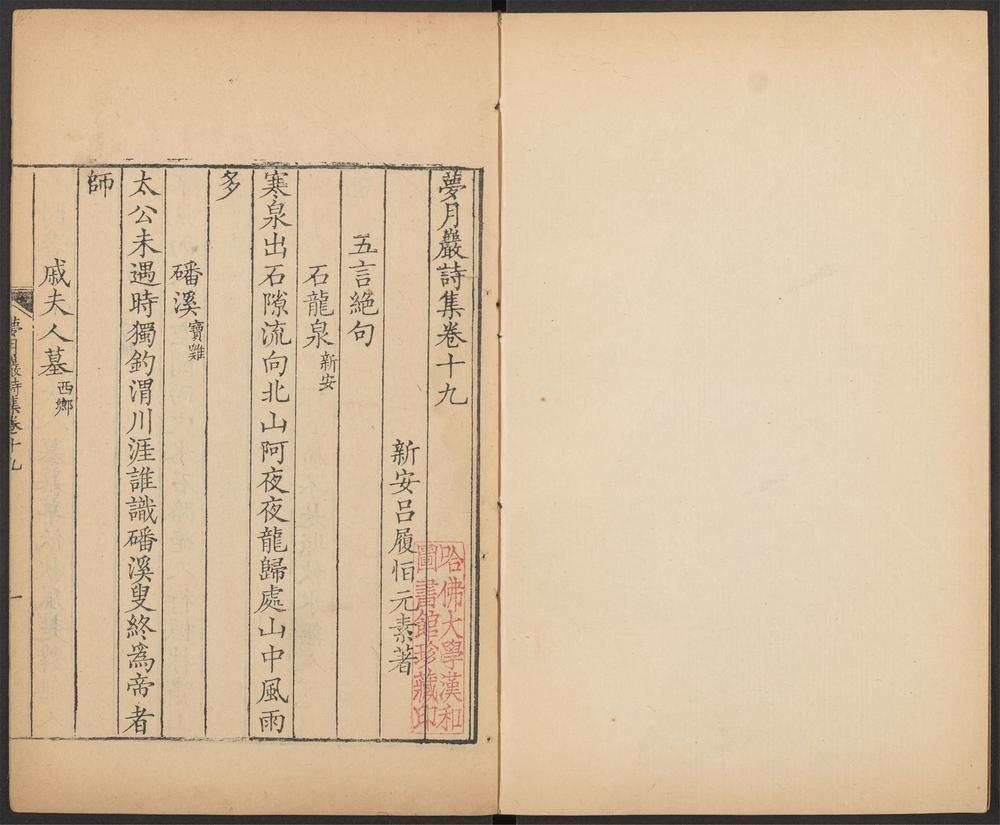 夢月巖詩集卷十九
新安呂履恒元素著
五言絕句
石龍泉新安
寒泉出石隙流向北山阿夜夜龍歸處山中風雨
多
磻溪寶雞
太公未遇時獨釣渭川涯誰識磻溪叟終爲帝者
師
戚夫人墓西鄉
夢月巖詩集卷十九
一
哈佛大學漢和
圖書館珍藏印